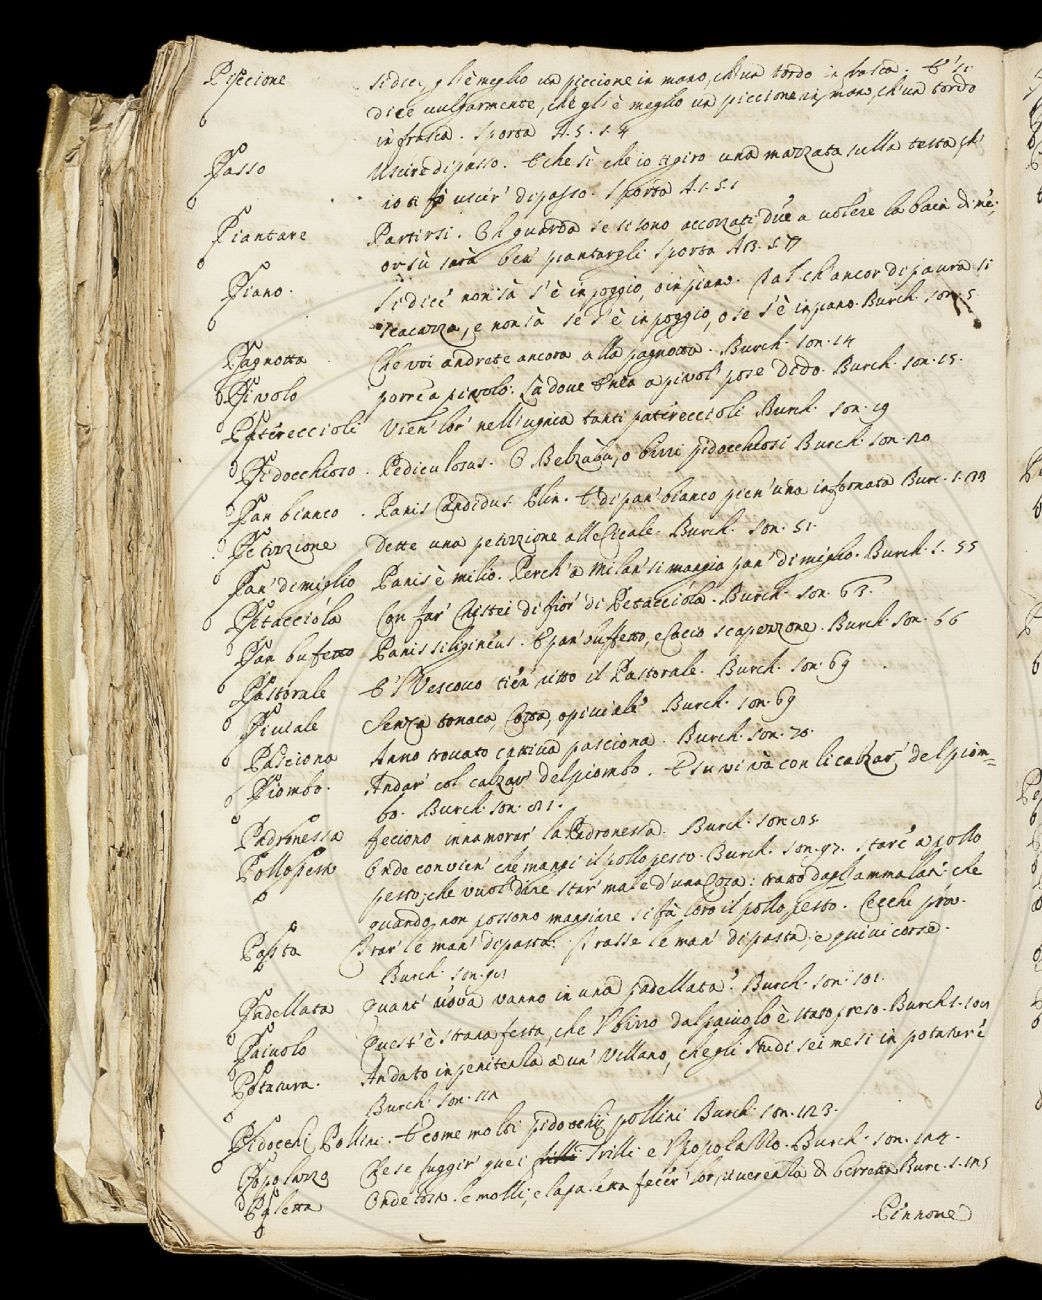 Piccione si dice gl'è meglio un piccione in mano, ch'un tordo in frasca. E si
dice vulgarmente, che gl'è meglio un piccione in mano, ch'un tordo
in frasca. Sporta A. 5. s. 4
Passo Uscire di passo. E che sì che io ti giro una mazzata sulla testa ch'
io ti fò uscir' di passo. Sporta A. 1. s. 1
Piantare Partirsi. Oh guarda se si sono accozzati due a volere la baia di me;
orsù sarà ben' piantargli Sporta A. 3. s.
Piano. Si dice non sà s'è in poggio, o in piano. ch'ancor di paura si
scacazza, e non sà se s'è in poggio, o se s'è in piano. Burch. son. 5
Pagnotta Che voi andrete ancora alla pagnotta. Burch. son. 14
Pivolo porre a pivolo. Là dove Enea a pivol' pose Dido. Burch. son. 15.
Patereccioli Vien' lor' nell'ugnia tanti patereccioli Burch. son. 19
Pidocchioso. Pediculosus. O Belzabù, o birri pidocchiosi Burch. son. 20
Pan bianco. Panis Candidus. Plin. E di pan' bianco pien' una infornata Burc. s.
Petizzione Dette una petizzione alle Cicale. Burch. son. 51.
Pan' di miglio Panis è milio. Perch' a Milan' si mangia pan' di miglio. Burch. s. 55
Petacciola Con far' Cristei di fior' di Petacciola. Burch. son. 63.
Pan buffetto Panis siligineus. E pan' buffetto, e Cacio scapezzone. Burch. son. 66
Pastorale E'l Vescovo tien' ritto il Pastorale. Burch. son. 69
Piviale Senza tonaca, Cotta, o piviale Burch. son. 69
Pasciona Anno trovato cattiva pasciona. Burch. son. 70.
Piombo. Andar' col calzar' del piombo. E su vi và con li calzar' del piom=
bo. Burch. son. 81.
Padronessa feciono innamorar' la Padronessa. Burch. son. 85
Pollo pesto Onde convien' che mangi il pollo pesto. Burch. son. 97. stare a pollo
pesto, che vuol dire star' male d'una cosa: tratto dagli ammalati che
quando non possono mangiare si fà loro il pollo pesto. Cecchi prov.
Pasta Trar' le man' di pasta. Trasse le man' di pasta; e quivi corse.
Burch. son. 91
Padellata Quant' uova vanno in una padellata? Burch. son. 101.
Paiuolo Quest' è strana festa, che 'l birro dal paiuolo è stato preso. Burch. s.
Potatura. Andato in penitenza a un' Villano, che gli studi sei mesi in potature
Burch. son.
Pidocchi Pollini. E come molti pidocchi pollini Burch. son. 123.
Popolazzo Che se fuggir' quei Trilli e 'l Popolazzo. Burch. son. 124.
Paletta Onde le molli, e la paletta fecer' lor' riverenza di berretta Burc. s. 125
Pinnone